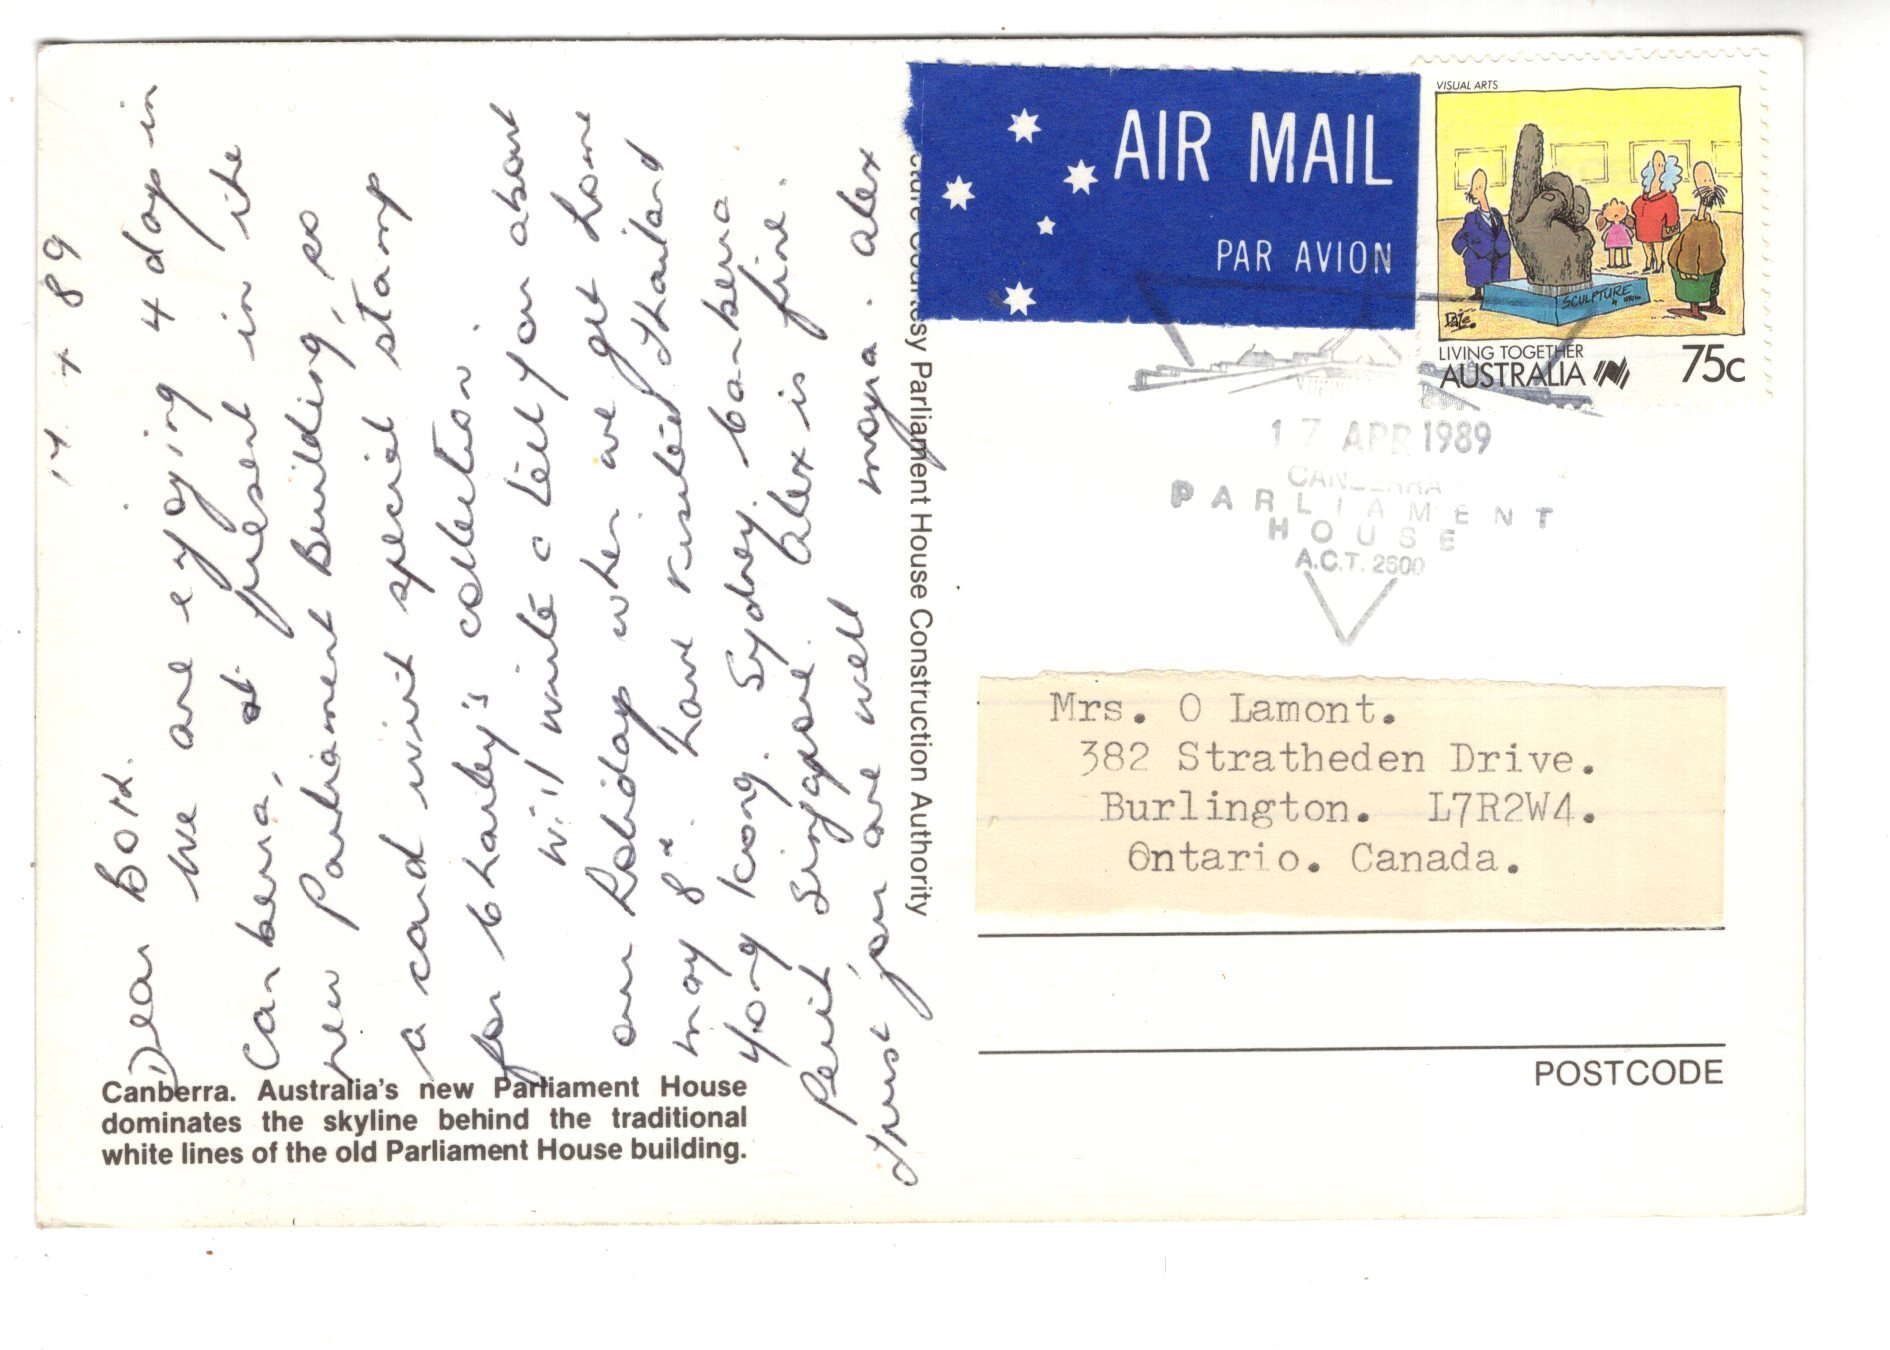 17 4 89
Dear Both.
We are enjoying 4 days in
Canberra, at present in the
new Parliament Building, so
a card with special stamp
for Charley's collection.
Will write & tell you about
our holiday when we get home
may 8th. have visited Thailand
Hong Kong. Sydney. Canberra
Perth Singapore. Alex is fine.
trust you are well Alex
Canberra. Australia's new Parliament House
dominates the skyline behind the traditional
white lines of the old Parliament House building.
Courtesy Parliament House Construction Authority
AIR MAIL
PAR AVION
VISUAL ARTS
SCULPTURE
LIVING TOGETHER
AUSTRALIA 75c
17 APR 1989
CANBERRA
PARLIAMENT
HOUSE
A.C.T. 2600
Mrs. O Lamont.
382 Stratheden Drive.
Burlington. L7R2W4.
Ontario. Canada.
POSTCODE